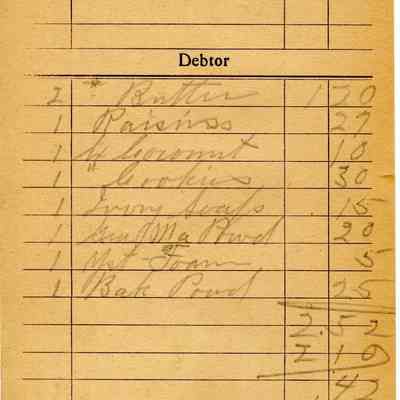 Debtor
2 # Butter 1 20
1 Raisins 27
1 ¼ Coconut 10
1 " Cookies 30
1 Ivory Soap 15
1 Ma Powd 20
1 Yst Foam 5
1 Bak Powd 25
2.52
2 10
.42